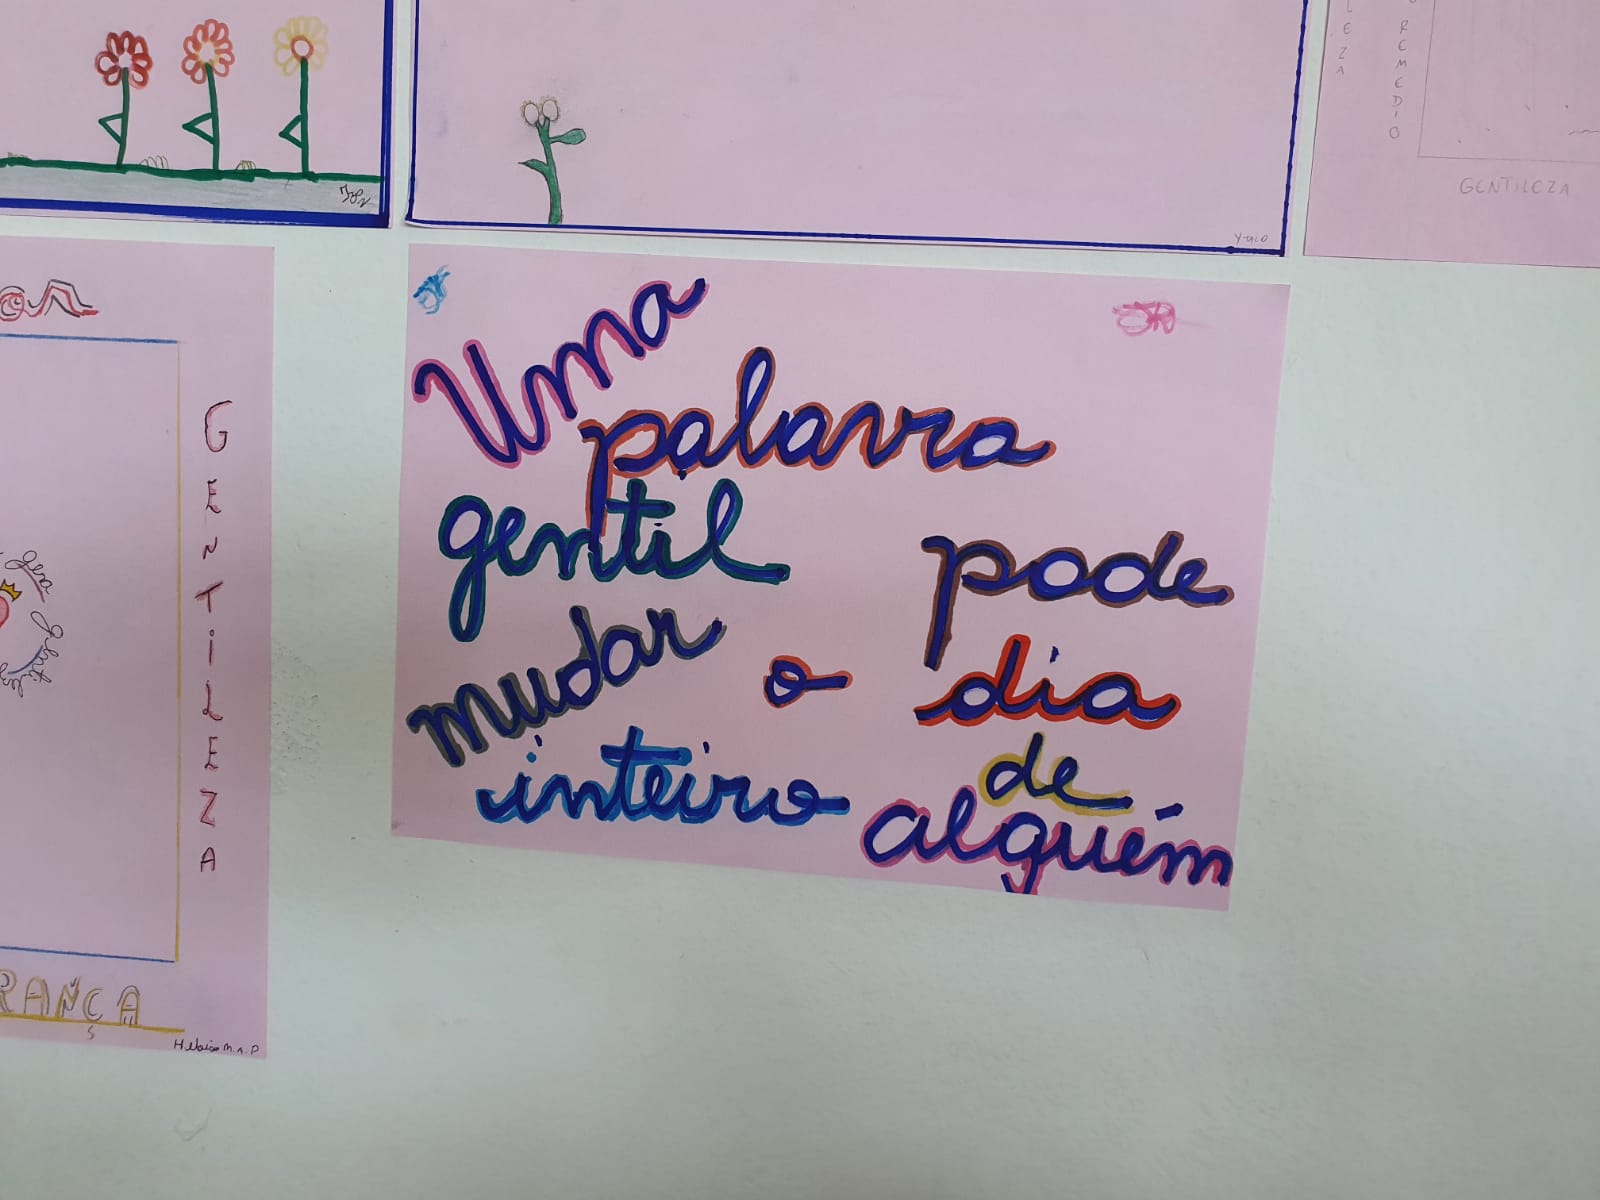 Uma
palavra
gentil pode
mudar o dia
inteiro de
alguém
GENTILEZA
RANÇA
GENTILEZA
REMEDIO
LEZA
YTALO